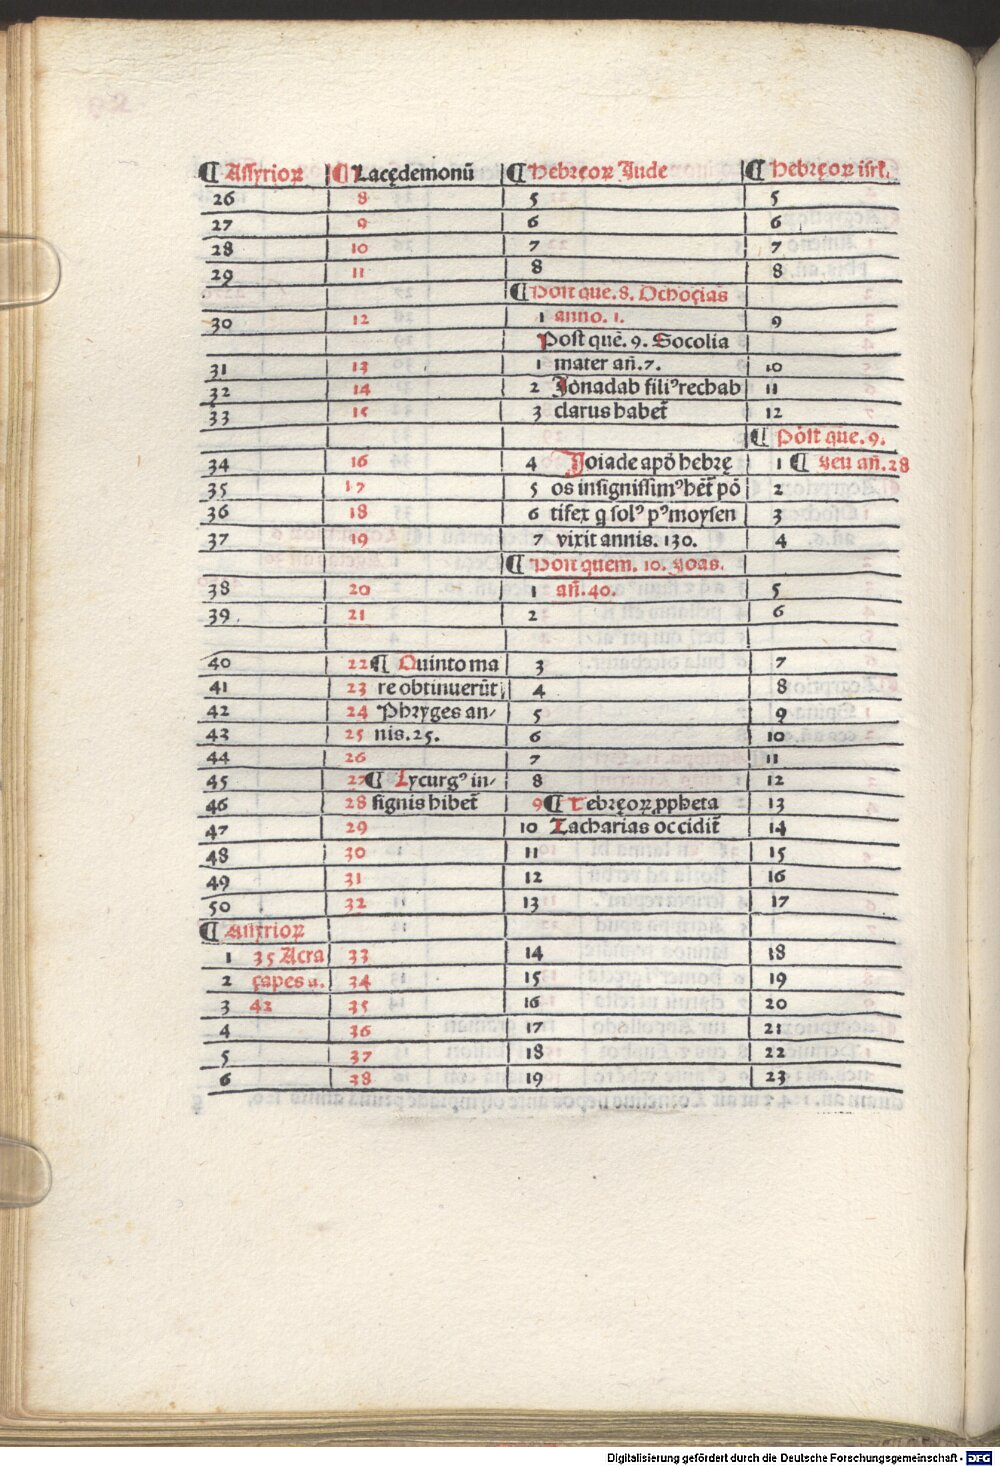 ¶ Assyrioꝝ ¶ Lacędemonū ¶ Hebręoꝝ Iude ¶ Hebręoꝝ isrł.
26 8 5 5
27 9 6 6
28 10 7 7
29 11 8 8
¶ Post que. 8. Ochoçias
30 12 1 anno. 1. 9
Post quē. 9. Gocolia
31 13 1 mater añ. 7. 10
32 14 2 Jonadab filiꝰ rechab 11
33 15 3 clarus habet̄ 12
¶ Post que. 9.
34 16 4 Joiade apō hebrę 1 ¶ yeu añ. 28
35 17 5 os insignissimꝰ het̄ pō 2
36 18 6 tifex q solꝰ pꝰ moysen 3
37 19 7 vixit annis. 130. 4
¶ Post quem. 10. yoas.
38 20 1 añ. 40. 5
39 21 2 6
40 22 ¶ Quinto ma 3 7
41 23 re obtinuerūt 4 8
42 24 Phryges an/ 5 9
43 25 nis. 25. 6 10
44 26 7 11
45 27 ¶ Lycurgꝰ in/ 8 12
46 28 signis hibet̄ 9 ¶ Hebręoꝝ ppheta 13
47 29 10 Zacharias occidit̄ 14
48 30 11 15
49 31 12 16
50 32 13 17
¶ Assyrioꝝ
1 35 Acra 33 14 18
2 çapes a. 34 15 19
3 42 35 16 20
4 36 17 21
5 37 18 22
6 38 19 23
Digitalisierung gefördert durch die Deutsche Forschungsgemeinschaft - DFG